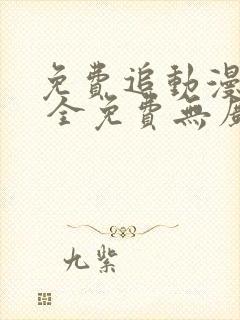 免費追動漫
全免費無廣
九紫